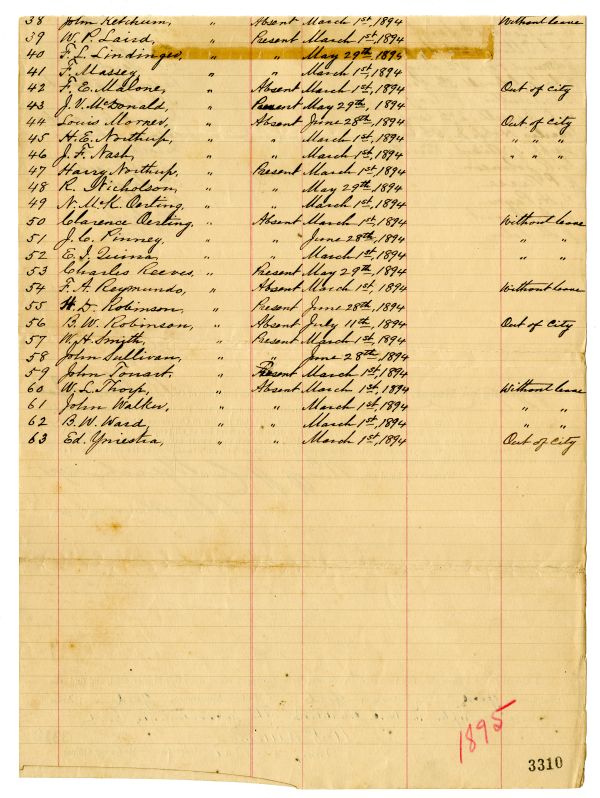 38 John Ketchum, " Absent March 1st, 1894 Without leave
39 W. P. Laird, " Present March 1st, 1894
40 F. L. Lindinger, " " May 29th, 1894
41 F. Massey, " " March 1st, 1894
42 F. E. Malone, " Absent March 1st, 1894 Out of city
43 J. V. McDonald, " Present May 29th, 1894
44 Louis Morner, " Absent June 28th, 1894 Out of city
45 H. E. Northup, " " March 1st, 1894 " " "
46 J. F. Nash, " " March 1st, 1894 " " "
47 Harry Northup, " Present March 1st, 1894
48 R. Nicholson, " " May 29th, 1894
49 N. McK. Oerting, " " March 1st, 1894
50 Clarence Oerting, " Absent March 1st, 1894 Without leave
51 J. C. Pinney, " " June 28th, 1894 " "
52 E. J. Quina, " " March 1st, 1894 " "
53 Charles Reeves, " Present May 29th, 1894
54 F. A. Reymundo, " Absent March 1st, 1894 Without leave
55 H. D. Robinson, " Present June 28th, 1894
56 B. W. Robinson, " Absent July 11th, 1894 Out of City
57 W. H. Smith, " Present March 1st, 1894
58 John Sullivan, " " June 28th, 1894
59 John Tonart, " Present March 1st, 1894
60 W. L. Thorp, " Absent March 1st, 1894 Without leave
61 John Walker, " " March 1st, 1894 " "
62 B. W. Ward, " " March 1st, 1894 " "
63 Ed. Yniestra, " " March 1st, 1894 Out of City
1895
3310